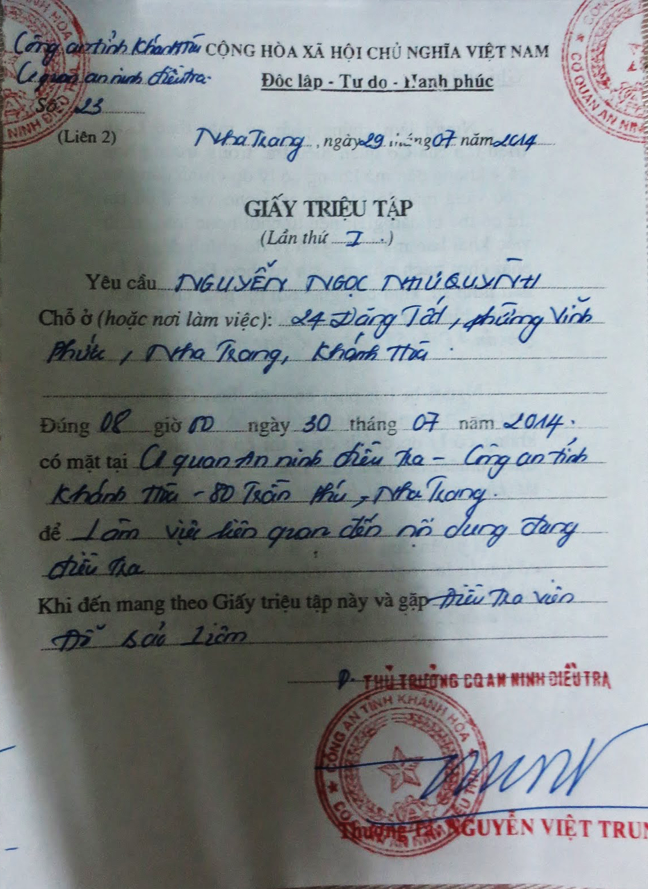 Công an tỉnh Khánh Hòa CỘNG HÒA XÃ HỘI CHỦ NGHĨA VIỆT NAM
Cơ quan an ninh điều tra Độc lập - Tự do - Hạnh phúc
Số: 23
(Liên 2) Nha Trang, ngày 29 tháng 07 năm 2014
GIẤY TRIỆU TẬP
(Lần thứ I)
Yêu cầu NGUYỄN NGỌC NHƯ QUỲNH
Chỗ ở (hoặc nơi làm việc): 24 Đặng Tất, phường Vĩnh
Phước, Nha Trang, Khánh Hòa.
Đúng 08 giờ 00 ngày 30 tháng 07 năm 2014.
có mặt tại Cơ quan An ninh điều tra - Công an tỉnh
Khánh Hòa - 80 Trần Phú, Nha Trang.
để Làm việc liên quan đến nội dung đang
điều tra
Khi đến mang theo Giấy triệu tập này và gặp Điều tra viên
Đỗ Liêm
P. THỦ TRƯỞNG CQ AN NINH ĐIỀU TRA
CÔNG AN TỈNH KHÁNH HÒA
CƠ QUAN AN NINH ĐIỀU TRA
Thượng Tá. NGUYỄN VIỆT TRUN